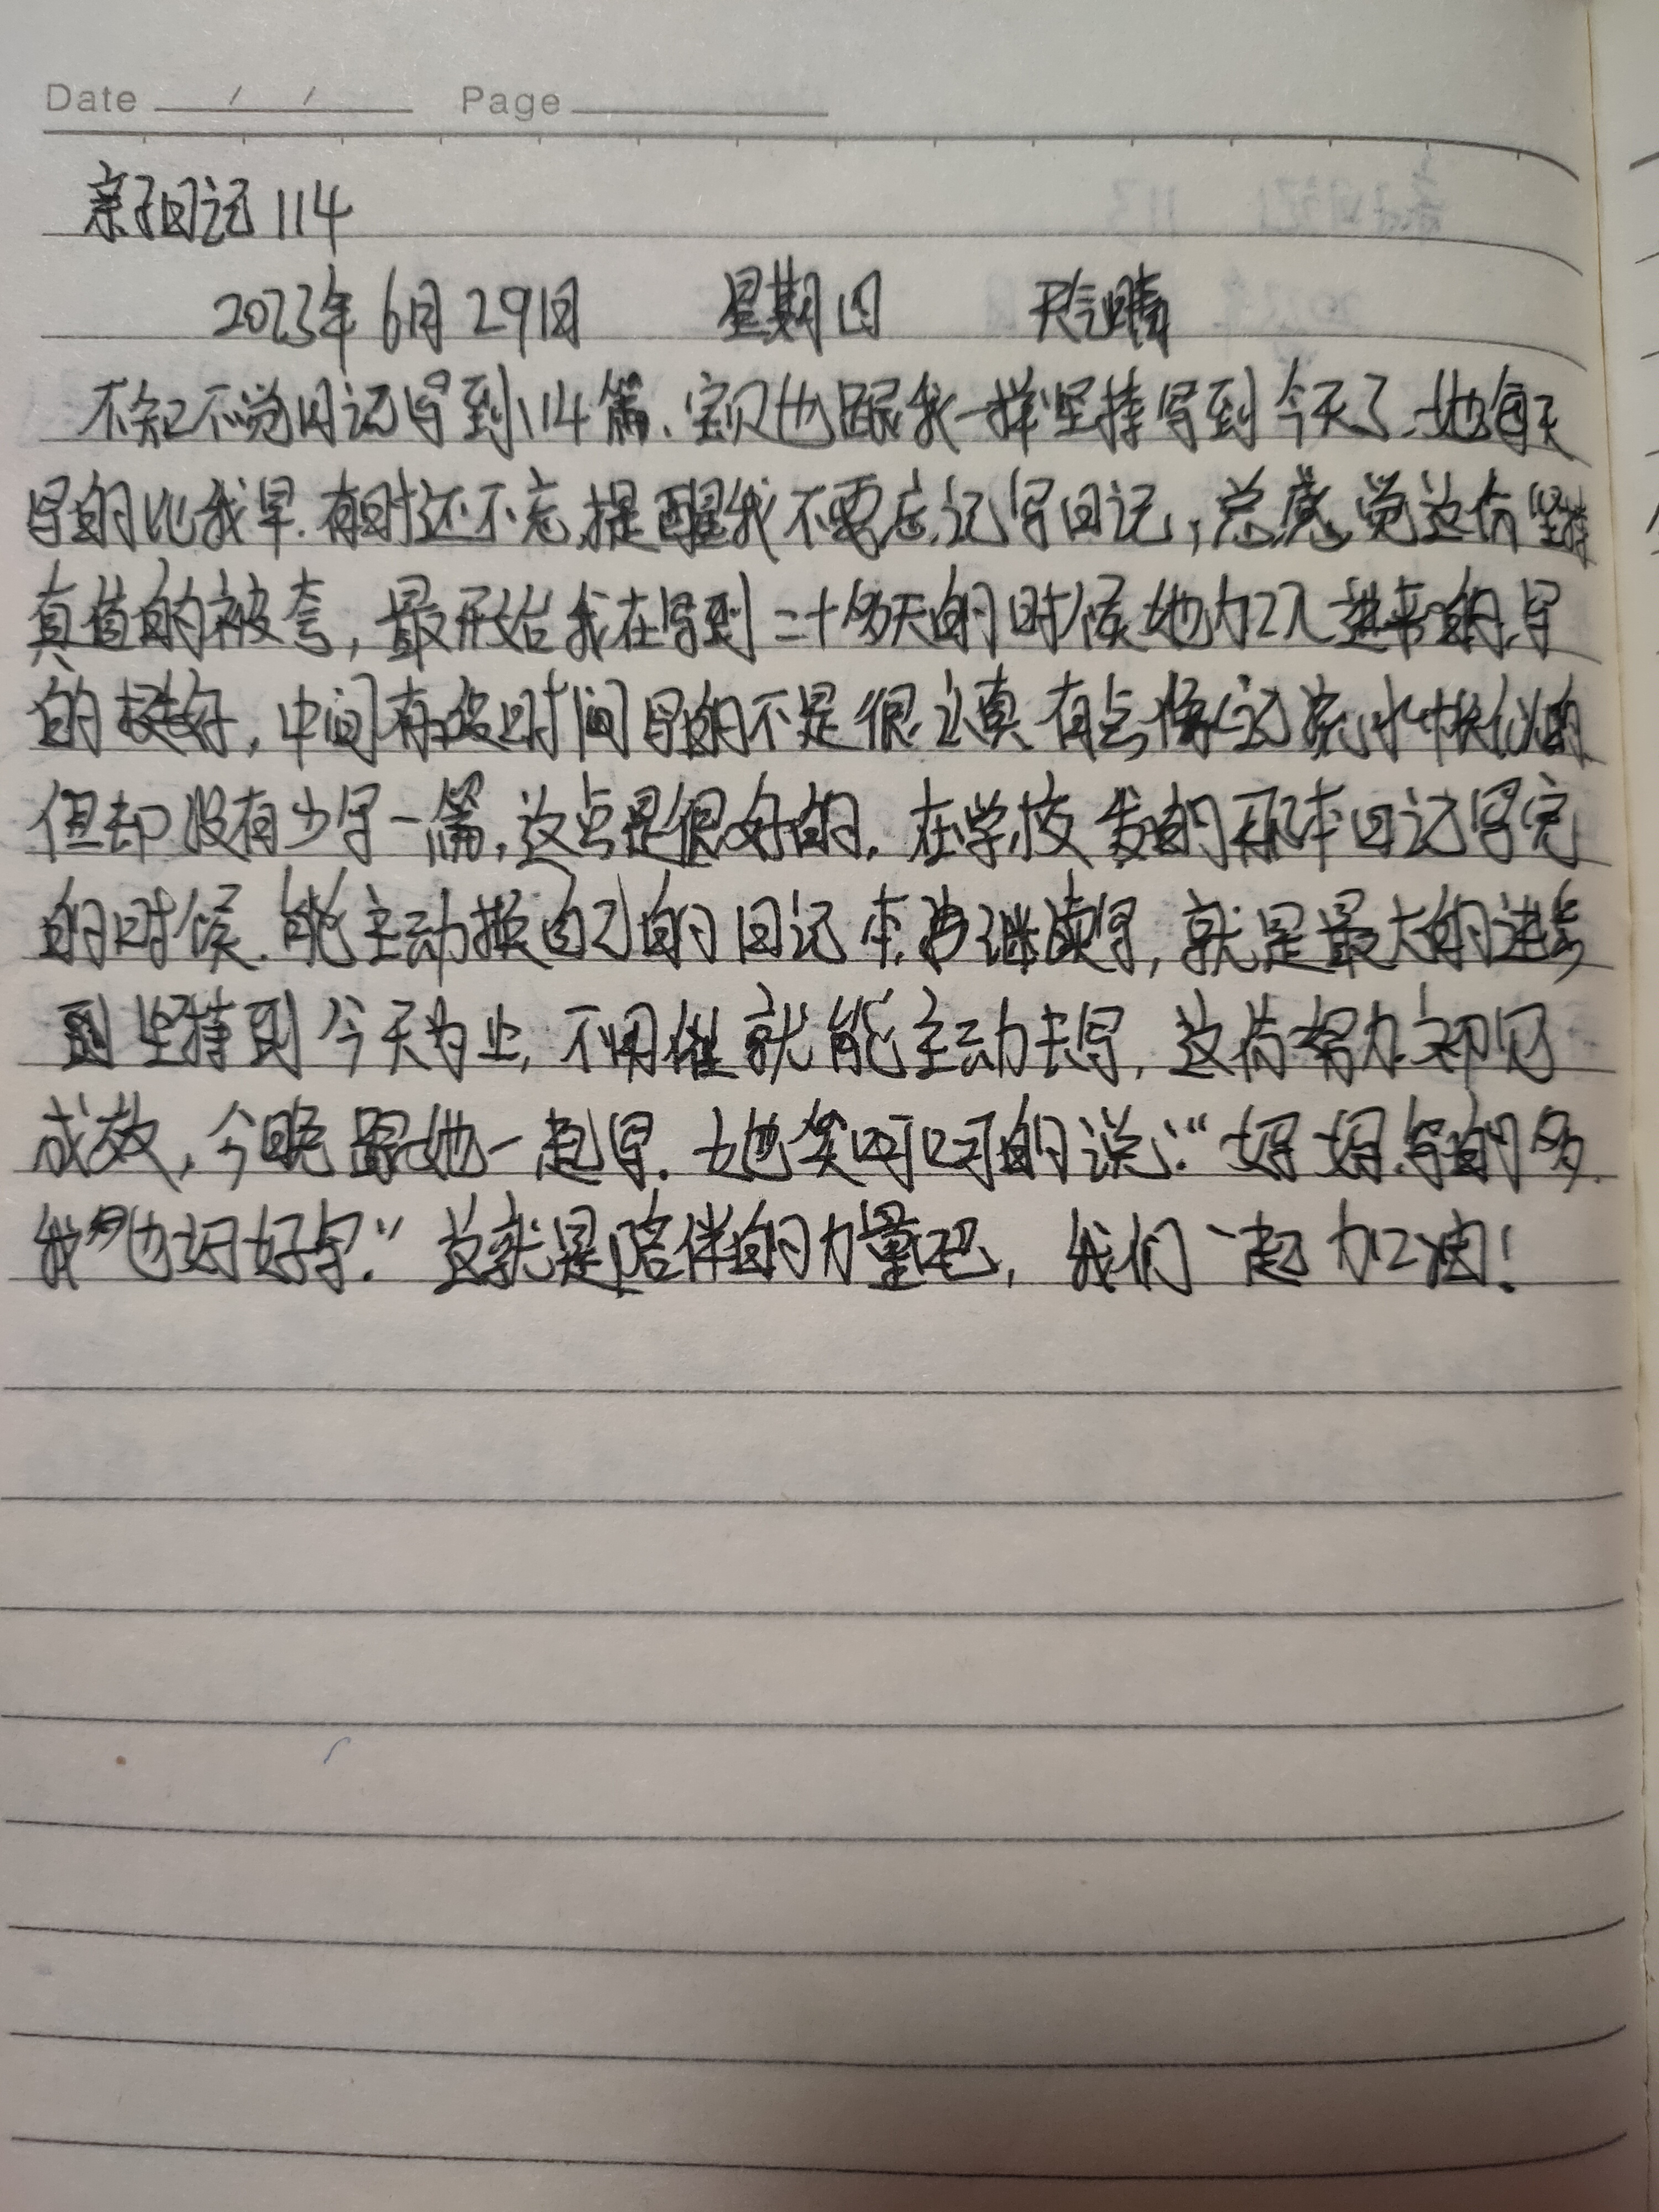 Date / / Page
亲子日记114
2023年6月29日 星期四 天气晴
不知不觉日记写到114篇.宝贝也跟我一样坚持写到今天了.她每天
写的比我早.有时还不忘提醒我不要忘记写日记,总感觉这份坚持
真值的被夸,最开始我在写到二十多天的时候她加入进来的,写
的挺好,中间有段时间写的不是很认真.有点像记流水帐似的
但却没有少写一篇,这点是很好的.在学校发的两本日记写完
的时候.能主动换自己的日记本继续写,就是最大的进步
到坚持到今天为止,不用催就能主动去写,这份努力初见
成效,今晚跟她一起写.她笑呵呵的说:“妈妈.写的多.
我也好好写.”这就是陪伴的力量吧,我们一起加油!